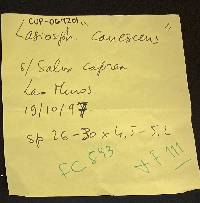 CUP-067201
"Lasiosph. canescens"
s/ Salix caprea
Las Menos
19/10/97
sp 26-30 x 4,5-5,2
FC 543
+ F 111